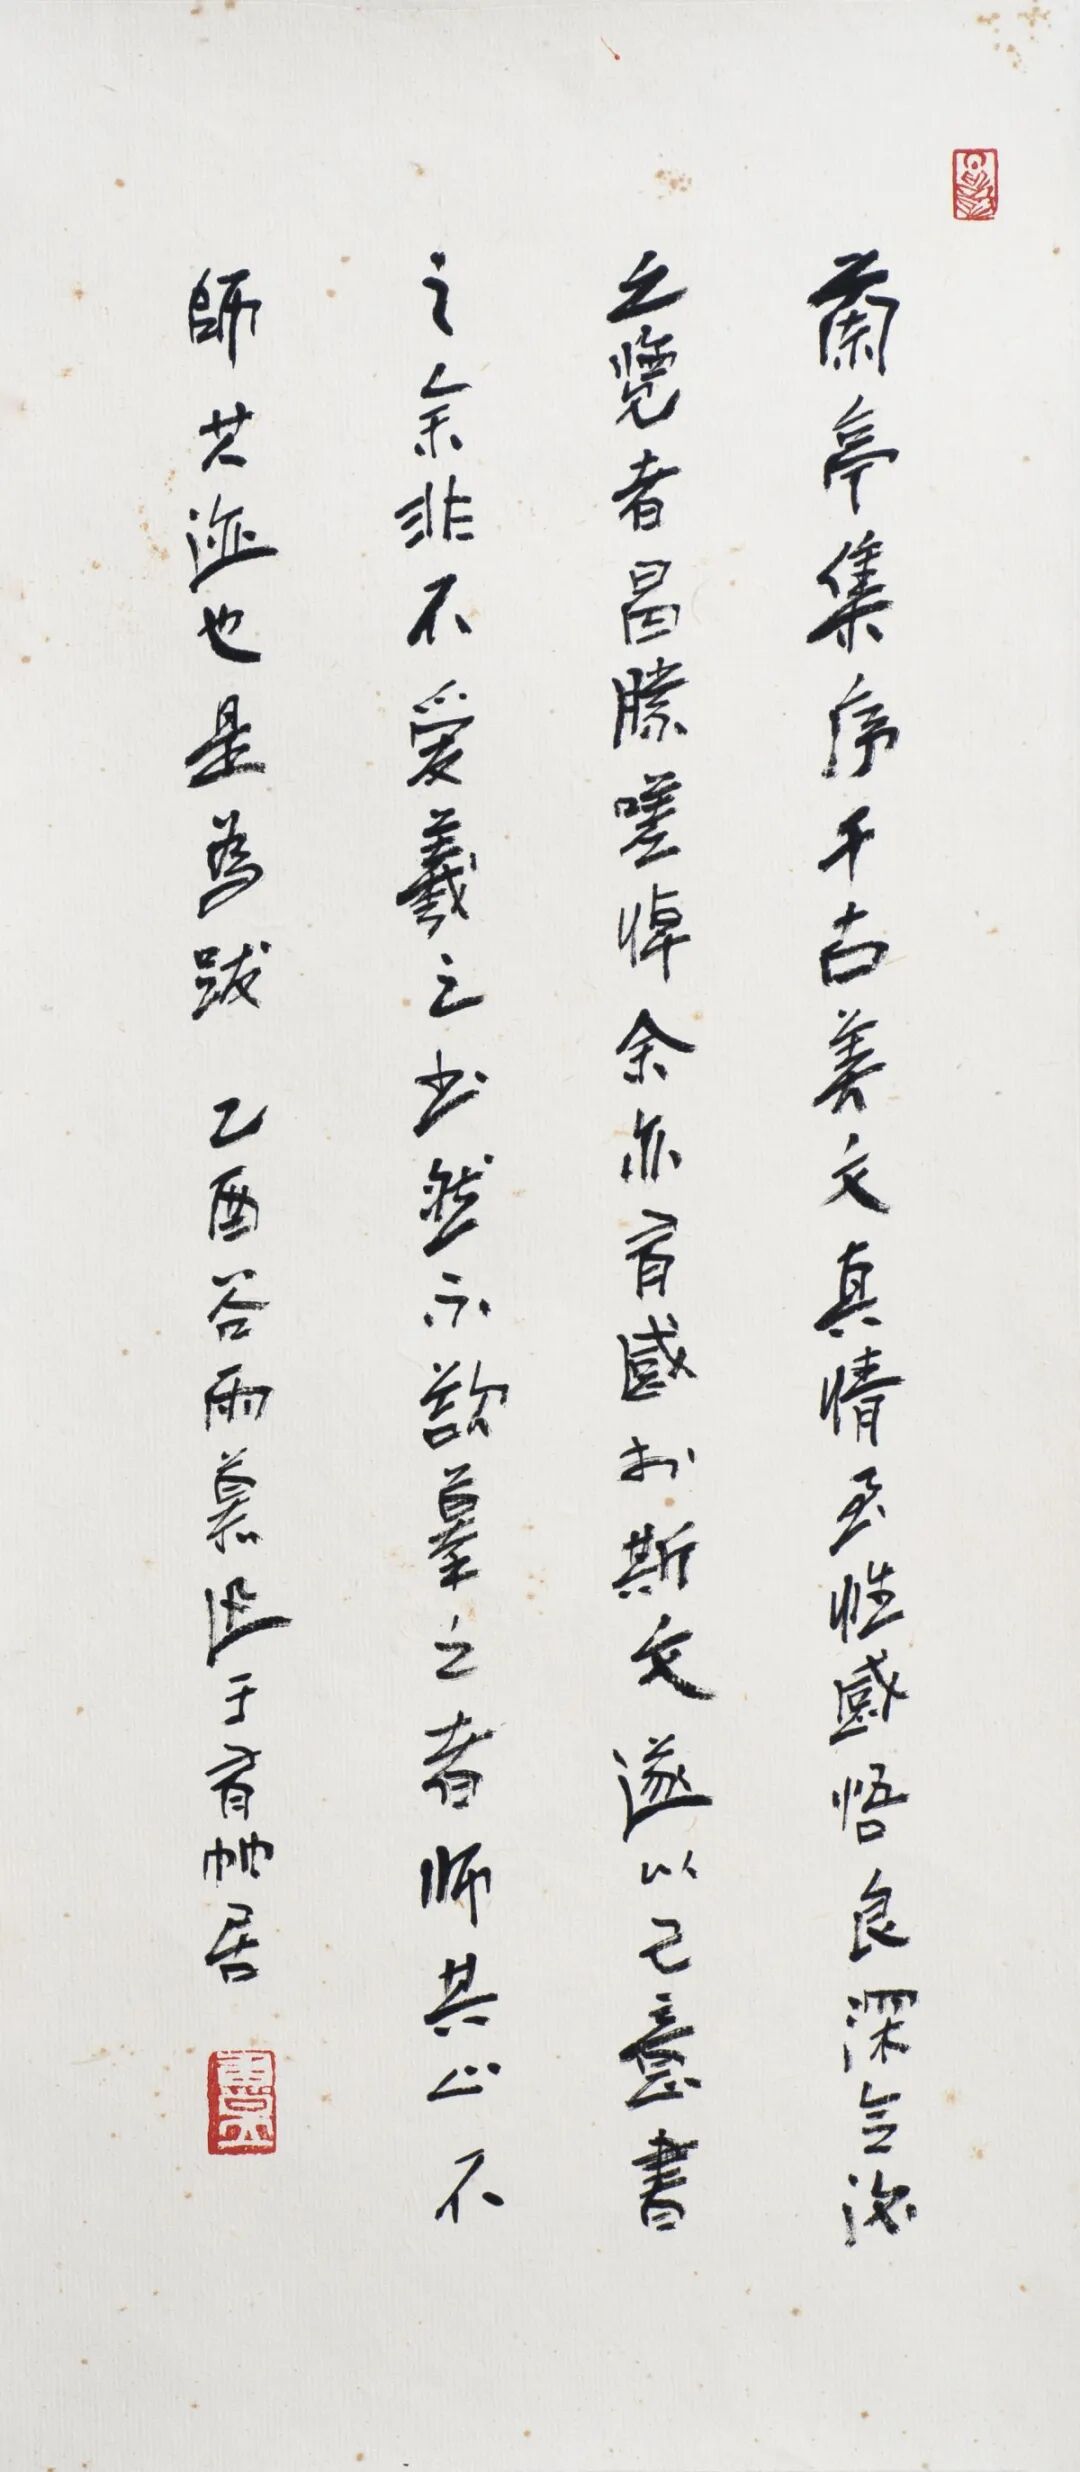 蘭亭集序千古美文真情至性感悟良深令後
之覽者曷勝嗟悼余亦有感於斯文遂以己意書
之余非不愛羲之书然摹之者师其心不
師其迹也是為跋 乙酉谷雨慕于有居